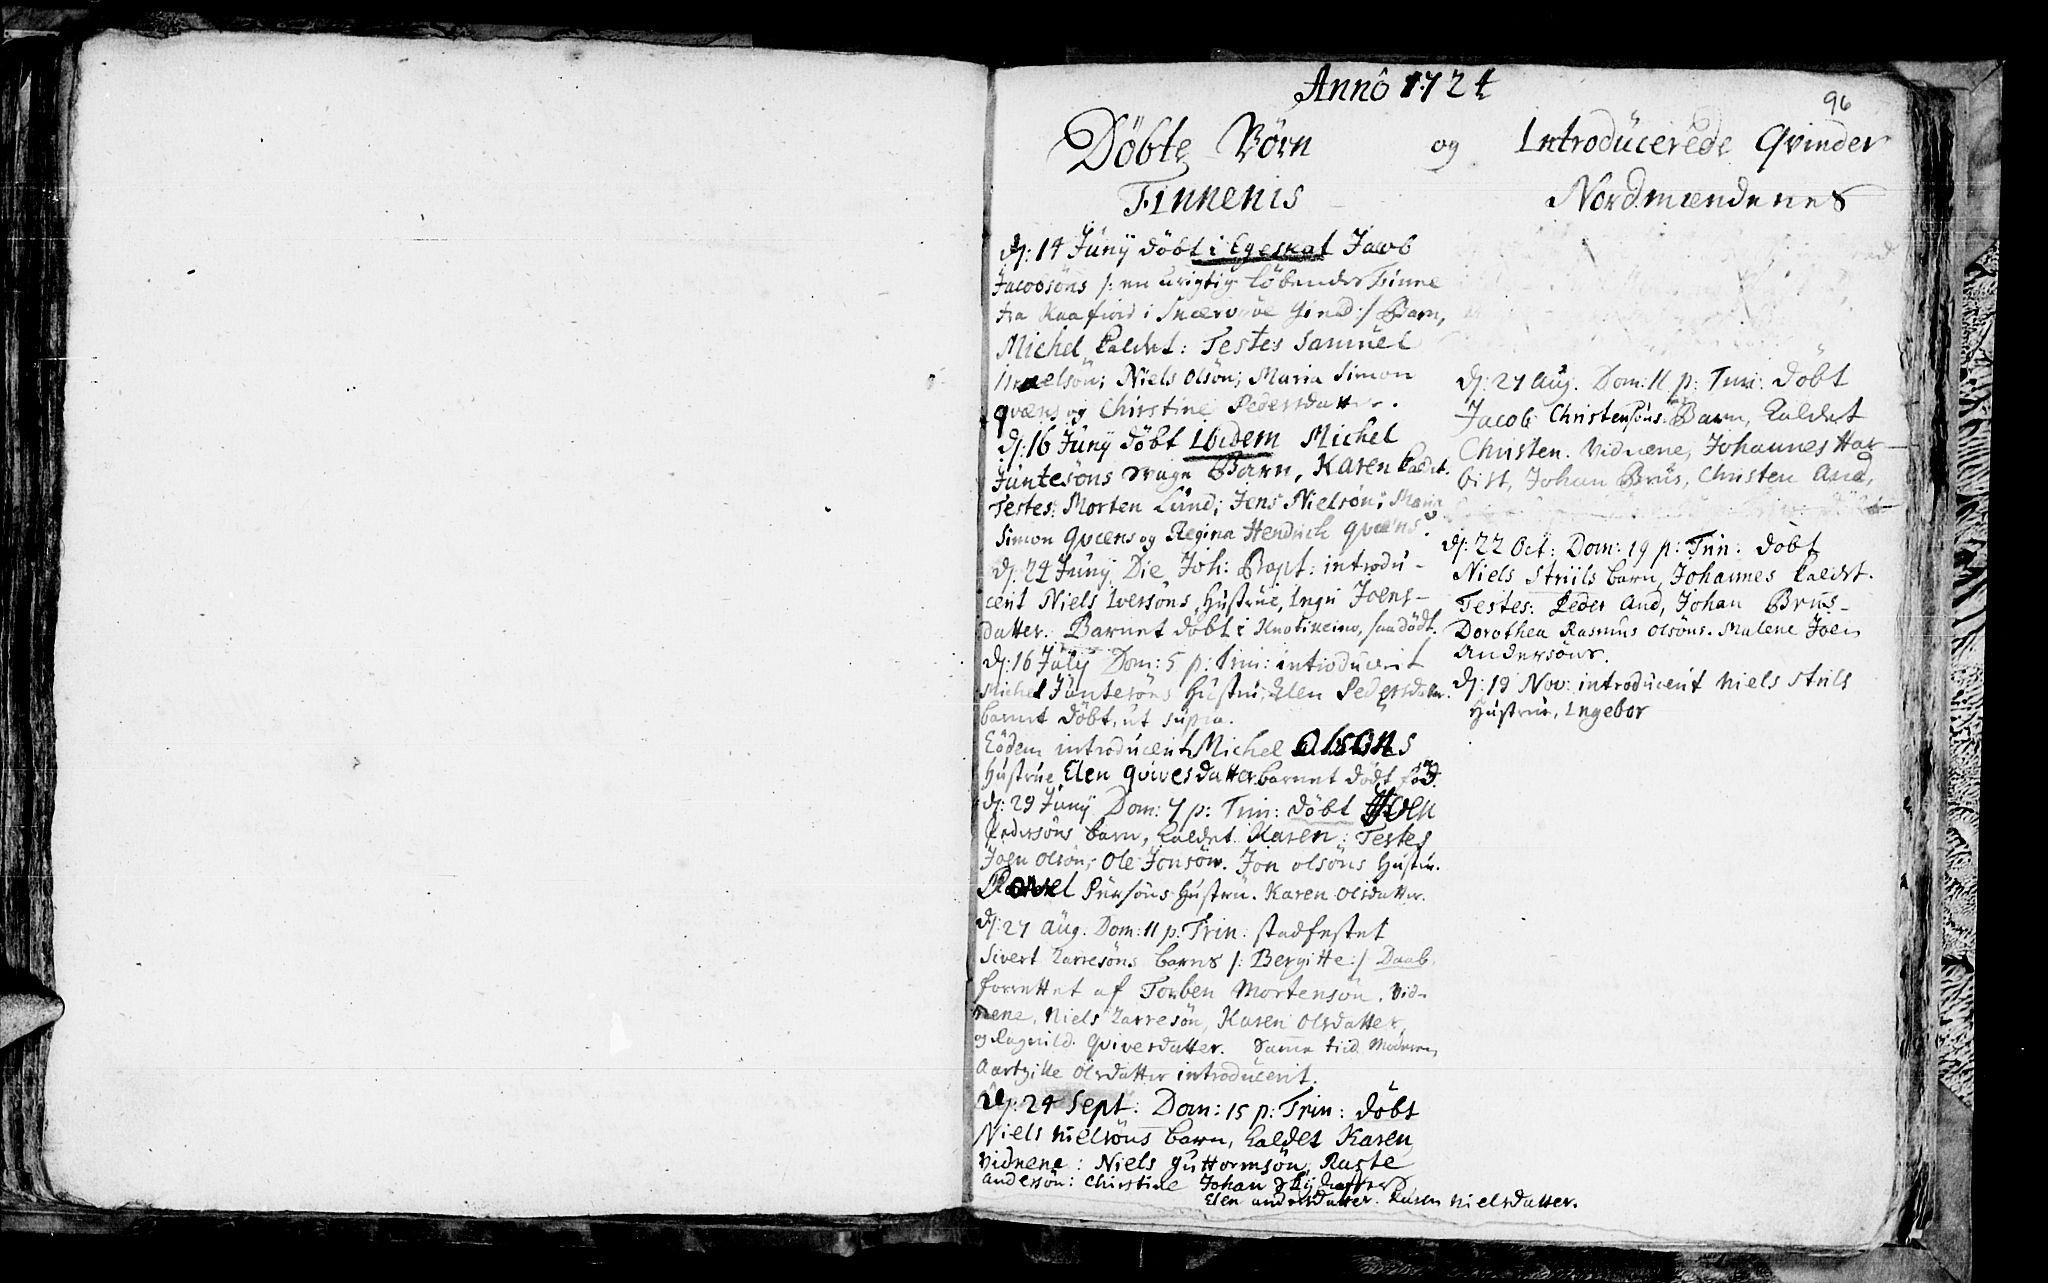 Annô 1724
96
Döbte Börn og Introducerede Qvinder
Finnenis
dj: 14 Junÿ döbt i Egeskal Jacob
Jacobsöns /: en urigtig löbender Finne
fra Kaafiord i Skiervöe Gield :/ Barn,
Michel kaldet: Testes Samuel
Niels Olsön; Maria Simon
qvæns og Chirstine Pedersdatter.
dj: 16 Junÿ döbt Ibidem Michel
Juntesöns Barn, Karen kaldet.
Testes: Morten Lund; Jens Nielsön; Maria
Simon Qvæns og Regina Hendrich qvæns.
dj: 24 Junÿ Die Joh: Bapt: introdu-
cerit Niels Iversöns Hustrue, Ingri Joens-
datter. Barnet döbt i saa dödt.
dj: 16 Julÿ Dom: 5 p: Trin: introducerit
Michel Juntesöns Hustru, Elen Pedersdatter.
barnet döbt, ut supra.
Eôdem introducerit Michel Olsöns
Hustrue Elen Qvivesdatter barnet dödt fôd.
dj: 29 Junÿ Dom: 7 p: Trin: döbt Joen
Pedersöns barn, kaldet Karen: Testes
Joen Olsön, Ole Jonsön. Jon olsöns Hustru.
Povel Hustru. Karen Olsdatter.
dj: 27 Aug. Dom: 11 p: Trin: stadfestet
Sivert Larresöns barns /: Bergitte :/ Daab
forrettet af Torben Mortensön. Vid-
nene, Niels Larresön, Karen Olsdatter,
og Ragnild Qvivesdatter. Samme tiid Moderen,
Olsdatter introducerit.
dj: 24 Sept: Dom: 15 p: Trin: döbt
Niels Nielsöns barn, kaldet Karen
Vidnene: Niels Guttormsön, Raste
Andersön: Chirstine Johan
Elen andersdatter. Karen Nielsdatter.
Nordmændenes
dj: 27 Aug. Dom: 11 p: Trin: döbt
Jacob Christensöns Barn, kaldet
Christen. Vidnene, Johannes Har-
bist, Johan Brüs, Christen And,
dj: 22 Oct: Dom: 19 p: Trin: döbt
Niels Striils barn, Johannes kaldet.
Testes: Peder And, Johan Brüs-
Dorothea Rasmus Olsöns. Malene Joen
Andersöns.
dj: 19 Nov: introducerit Niels Striils
Hustrue, Ingebor